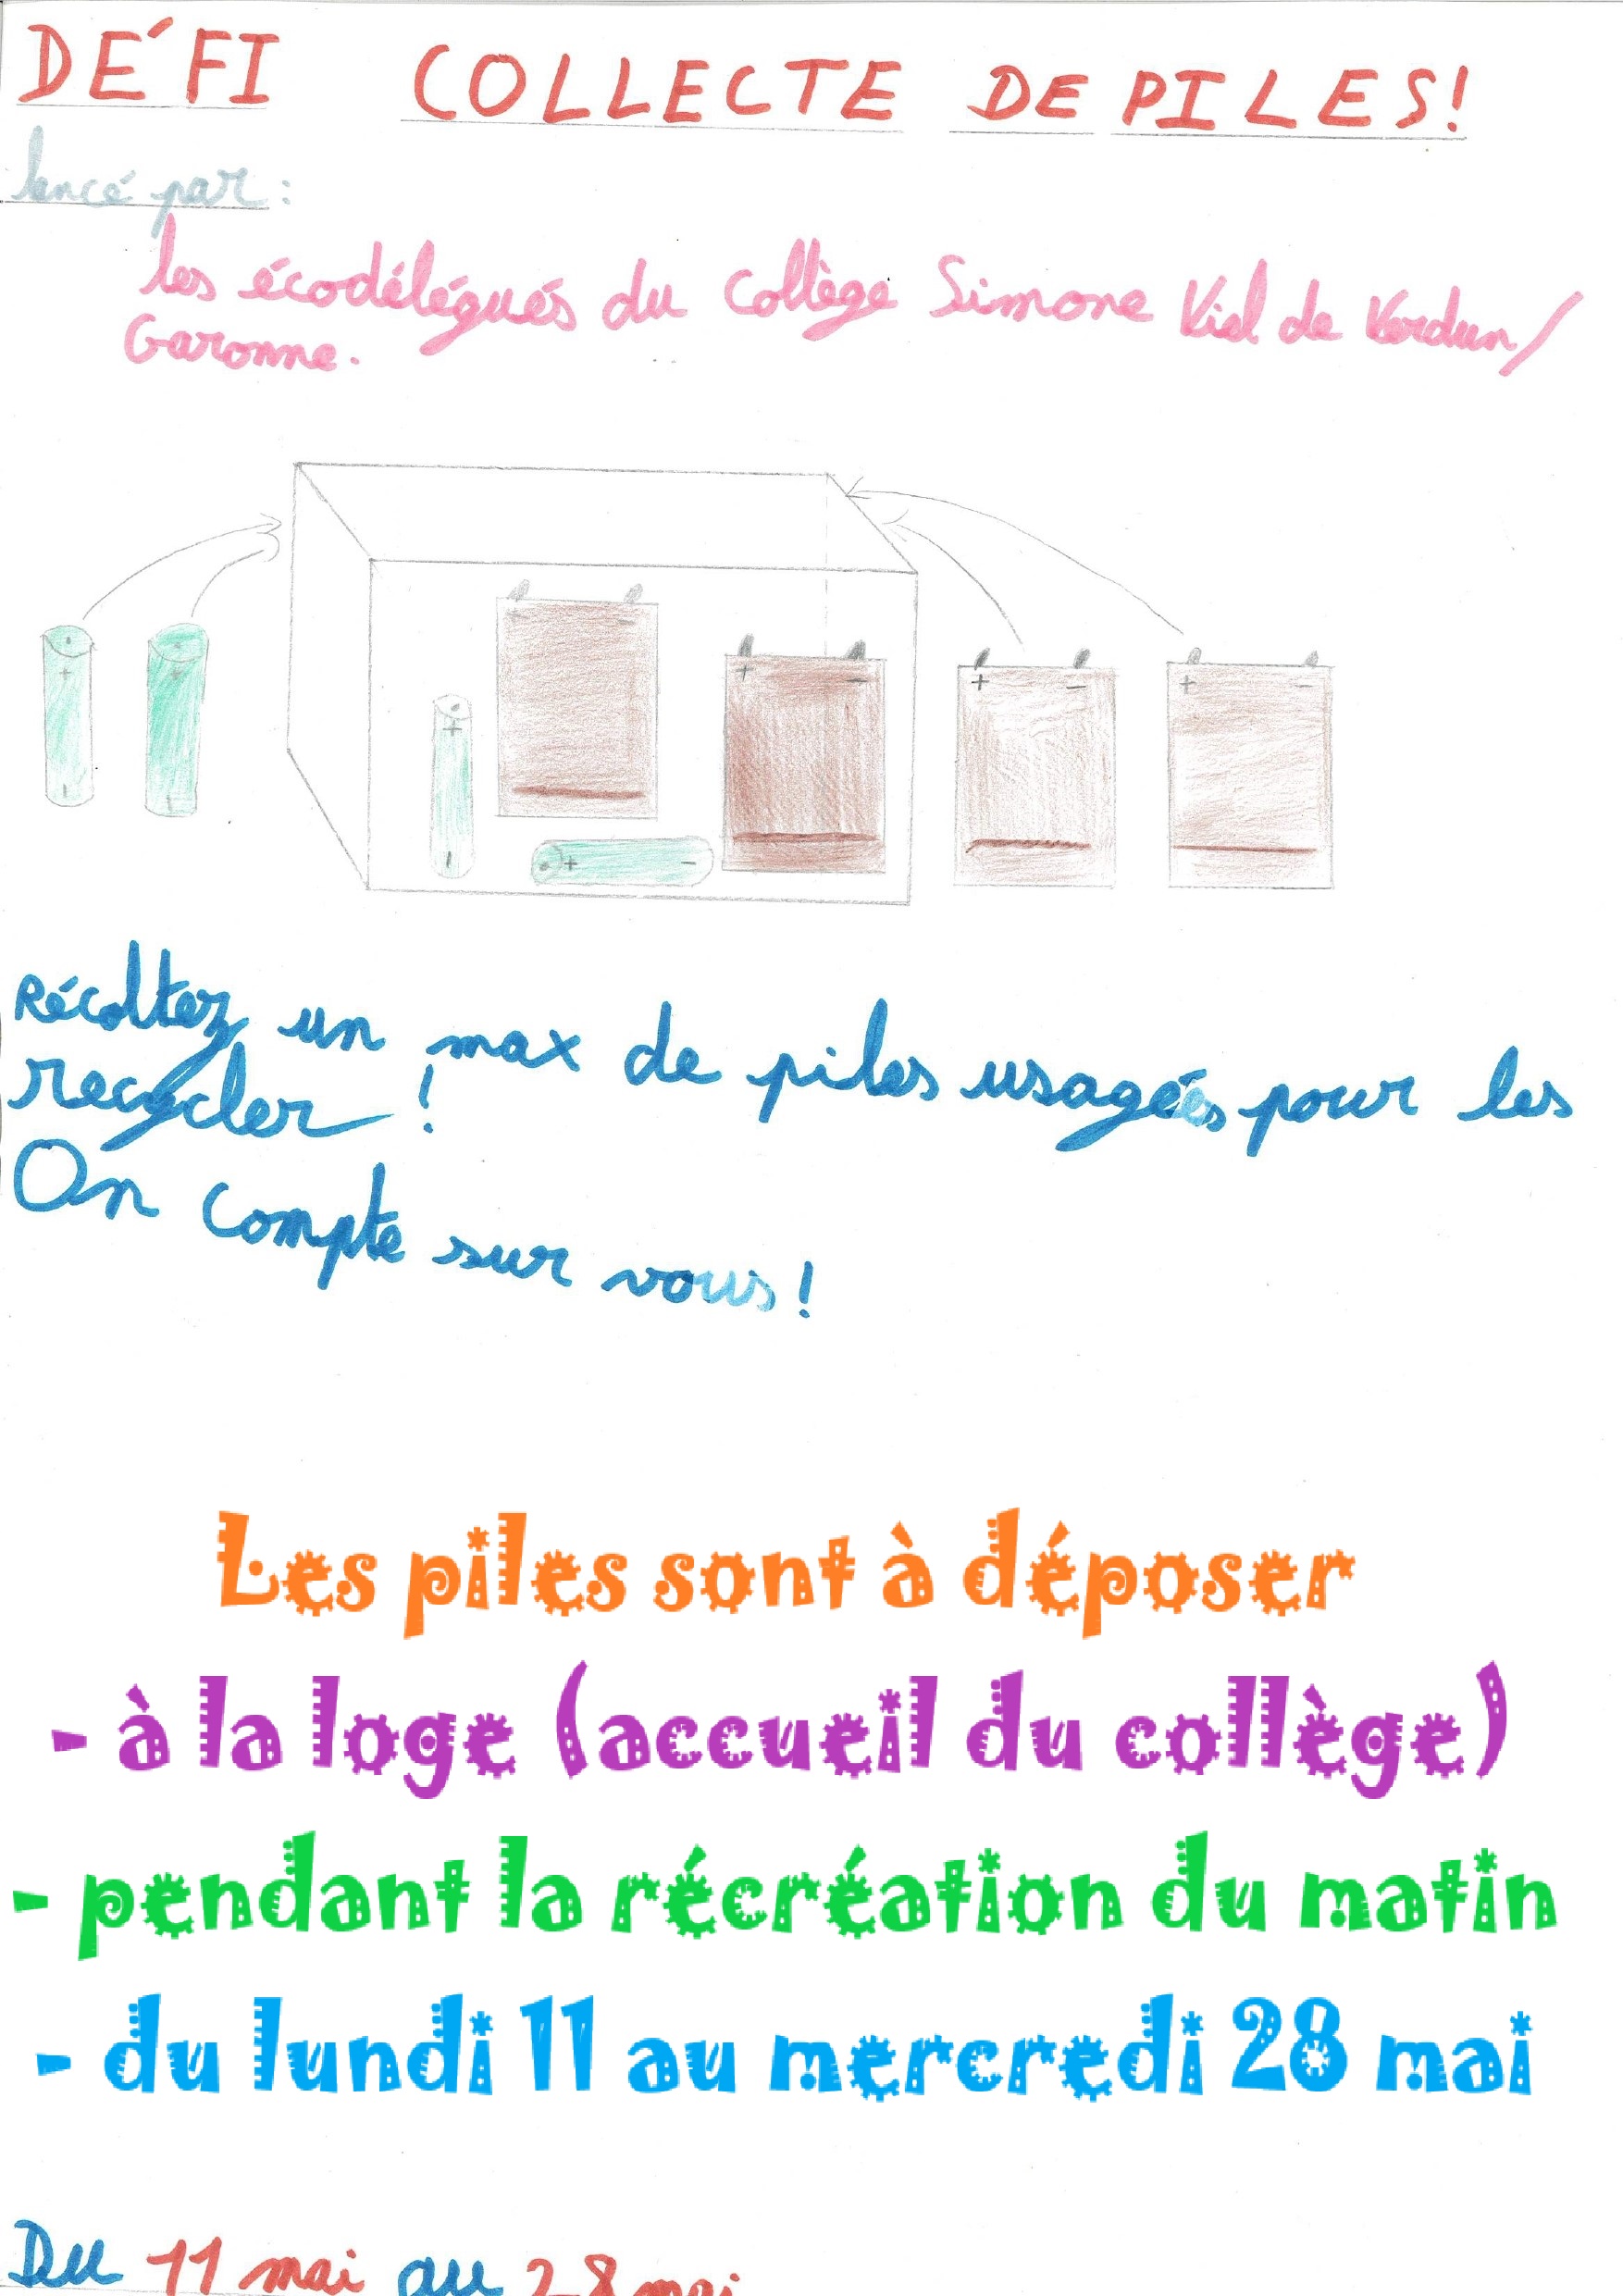 DÉFI COLLECTE DE PILES!
lencé par :
les écodélégués du Collège Simone Viel de Verdun/
Garonne.
+ -
+ -
+ -
+ -
+ -
+ -
+ -
+ -
Récoltez un max de piles usagées pour les
recycler !
On compte sur vous !
Les piles sont à déposer
- à la loge (accueil du collège)
- pendant la récréation du matin
- du lundi 11 au mercredi 28 mai
Du 11 mai au 28 mai